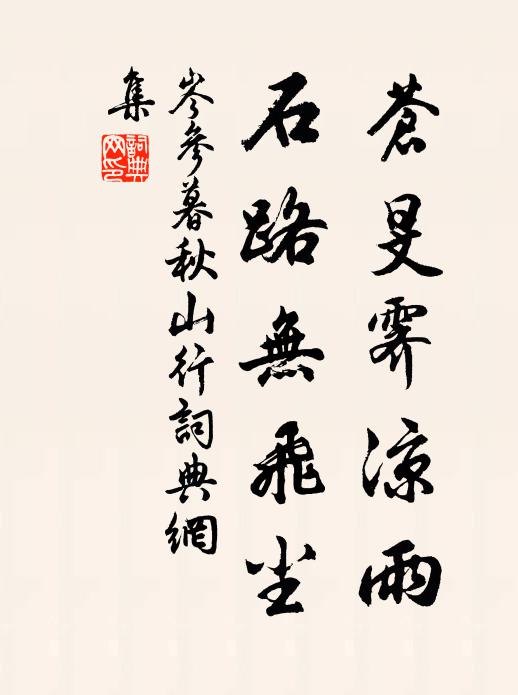 蒼旻霽涼雨
石路無飛尘
岑參暮秋山行詞典網
集
詞典網印